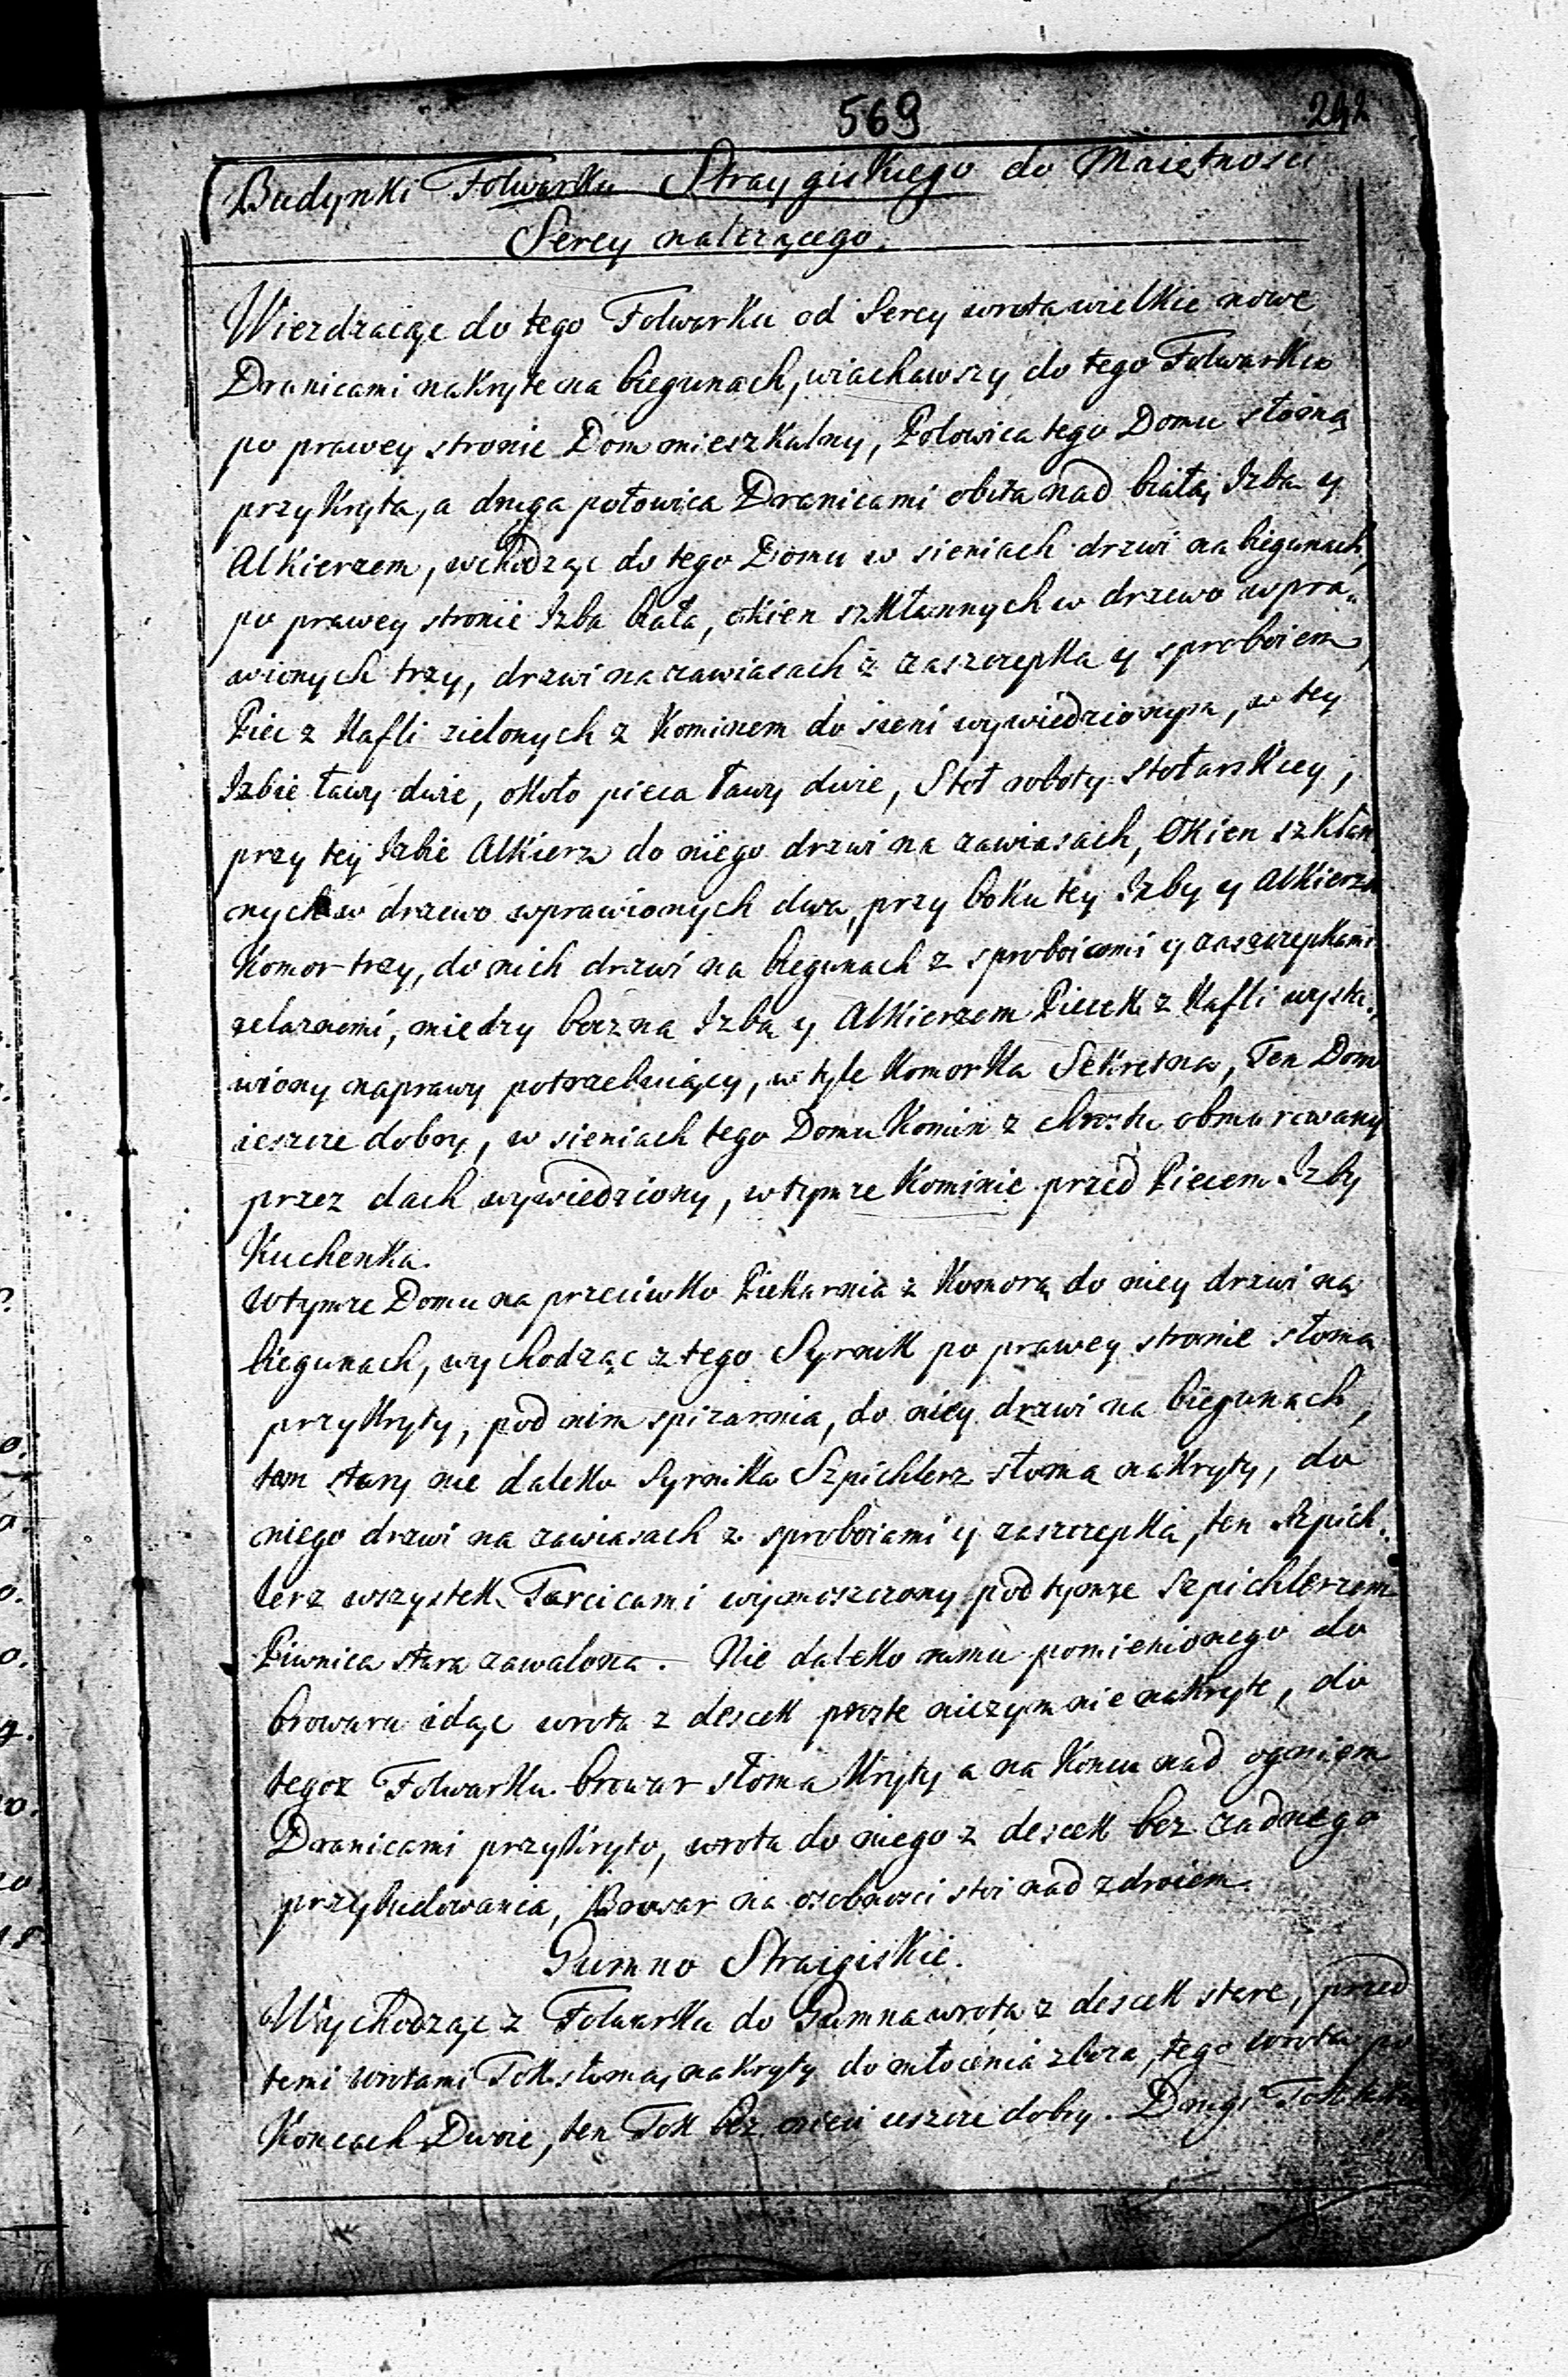 569
242
Budynki Folwarku Straygiskiego do Maiętnosci
Serey nalezącego.
Wiezdzaiąc do tego Folwarku od Serey wrota wielkie nowe
Dranicami nakryte na biegunach, wiachawszy do tego Folwarku
po prawey stronie Dom mieszkalny, Połowica tego Domu słomą
przykryta, a druga połowica Dranicami obita nad białą Izbą y
Alkierzem, wchodząc do tego Domu w sieniach drzwi na biegunach,
po prawey stronie Izba biała, okien szklannych w drzewo wpra„
wionych trzy, drzwi na zawiasach z zaszczepką y sproboiem,
Piec z kafli zielonych z Kominem do sieni wywiedzionym, w tey
Izbie ławy dwie, około pieca ławy dwie, Stoł roboty stolarskiey,
przy tey Izbie Alkierz do niego drzwi na zawiasach, Okien szklan
nych w drzewo wprawionych dwa, przy boku tey Izby y Alkierza
Komor trzy, do nich drzwi na biegunach z sproboiami y zaszczepkami
zelaznemi, miedzy boczną Izbą y Alkierzem Piecek z Kafli wysta„
wiony naprawy potrzebuiący, w tyle Komorka Sekretna, Ten Dom
ieszcze dobry, w sieniach tego Domu Komin z chrostu obmurowany
przez dach wywiedziony, w tymze Kominie przed Piecem Izby
Kuchenka.
W tymze Domu na przeciwko Piekarnia z Komorą do niey drzwi na
biegunach, wychodząc z tego Syrnik po prawey stronie słomą
przykryty, pod nim spizarnia, do niey drzwi na biegunach,
tam stary nie daleko Syrnika Szpichlerz słomą nakryty, do
niego drzwi na zawiasach z sproboiami y zaszczepką, ten Szpich„
lerz wszystek Tarcicami wymoszczony pod tymze Szpichlerzem
Piwnica stara zawalona. Nie daleko pomienionego do
browaru idąc wrota z descek proste niczym nie nakryte, do
tegoz Folwarku browar słomą kryty a na Koncu nad ogniem
Dranicami przykryto, wrota do niego z descek bez zadnego
przybudowania, Browar na osobnosci stoi nad zdroiem.
Gumno Straigiskie.
Wychodząc z Folwarku do Gumna wrota z descek stare, przed
temi wrotami Tok słomą nakryty do młocenia zboza, tego wrota po
Koncach Dwoie, ten Tok bez sieci ieszcze dobry. Drugi Tok